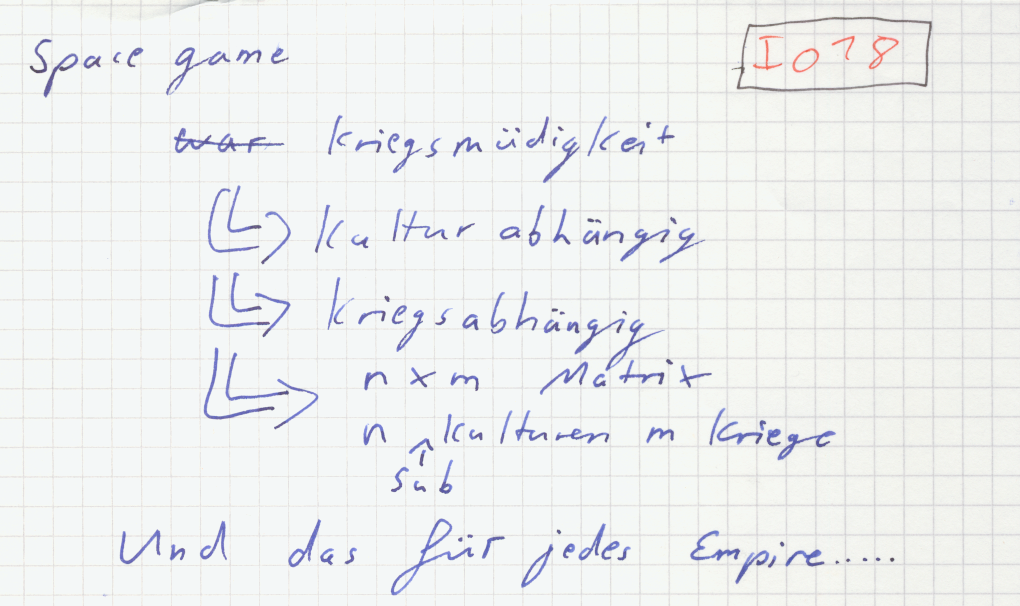 Space game
I018
war Kriegsmüdigkeit
Kultur abhängig
Kriegsabhängig
n x m Matrix
n Kulturen m Kriege
sub
Und das für jedes Empire.....